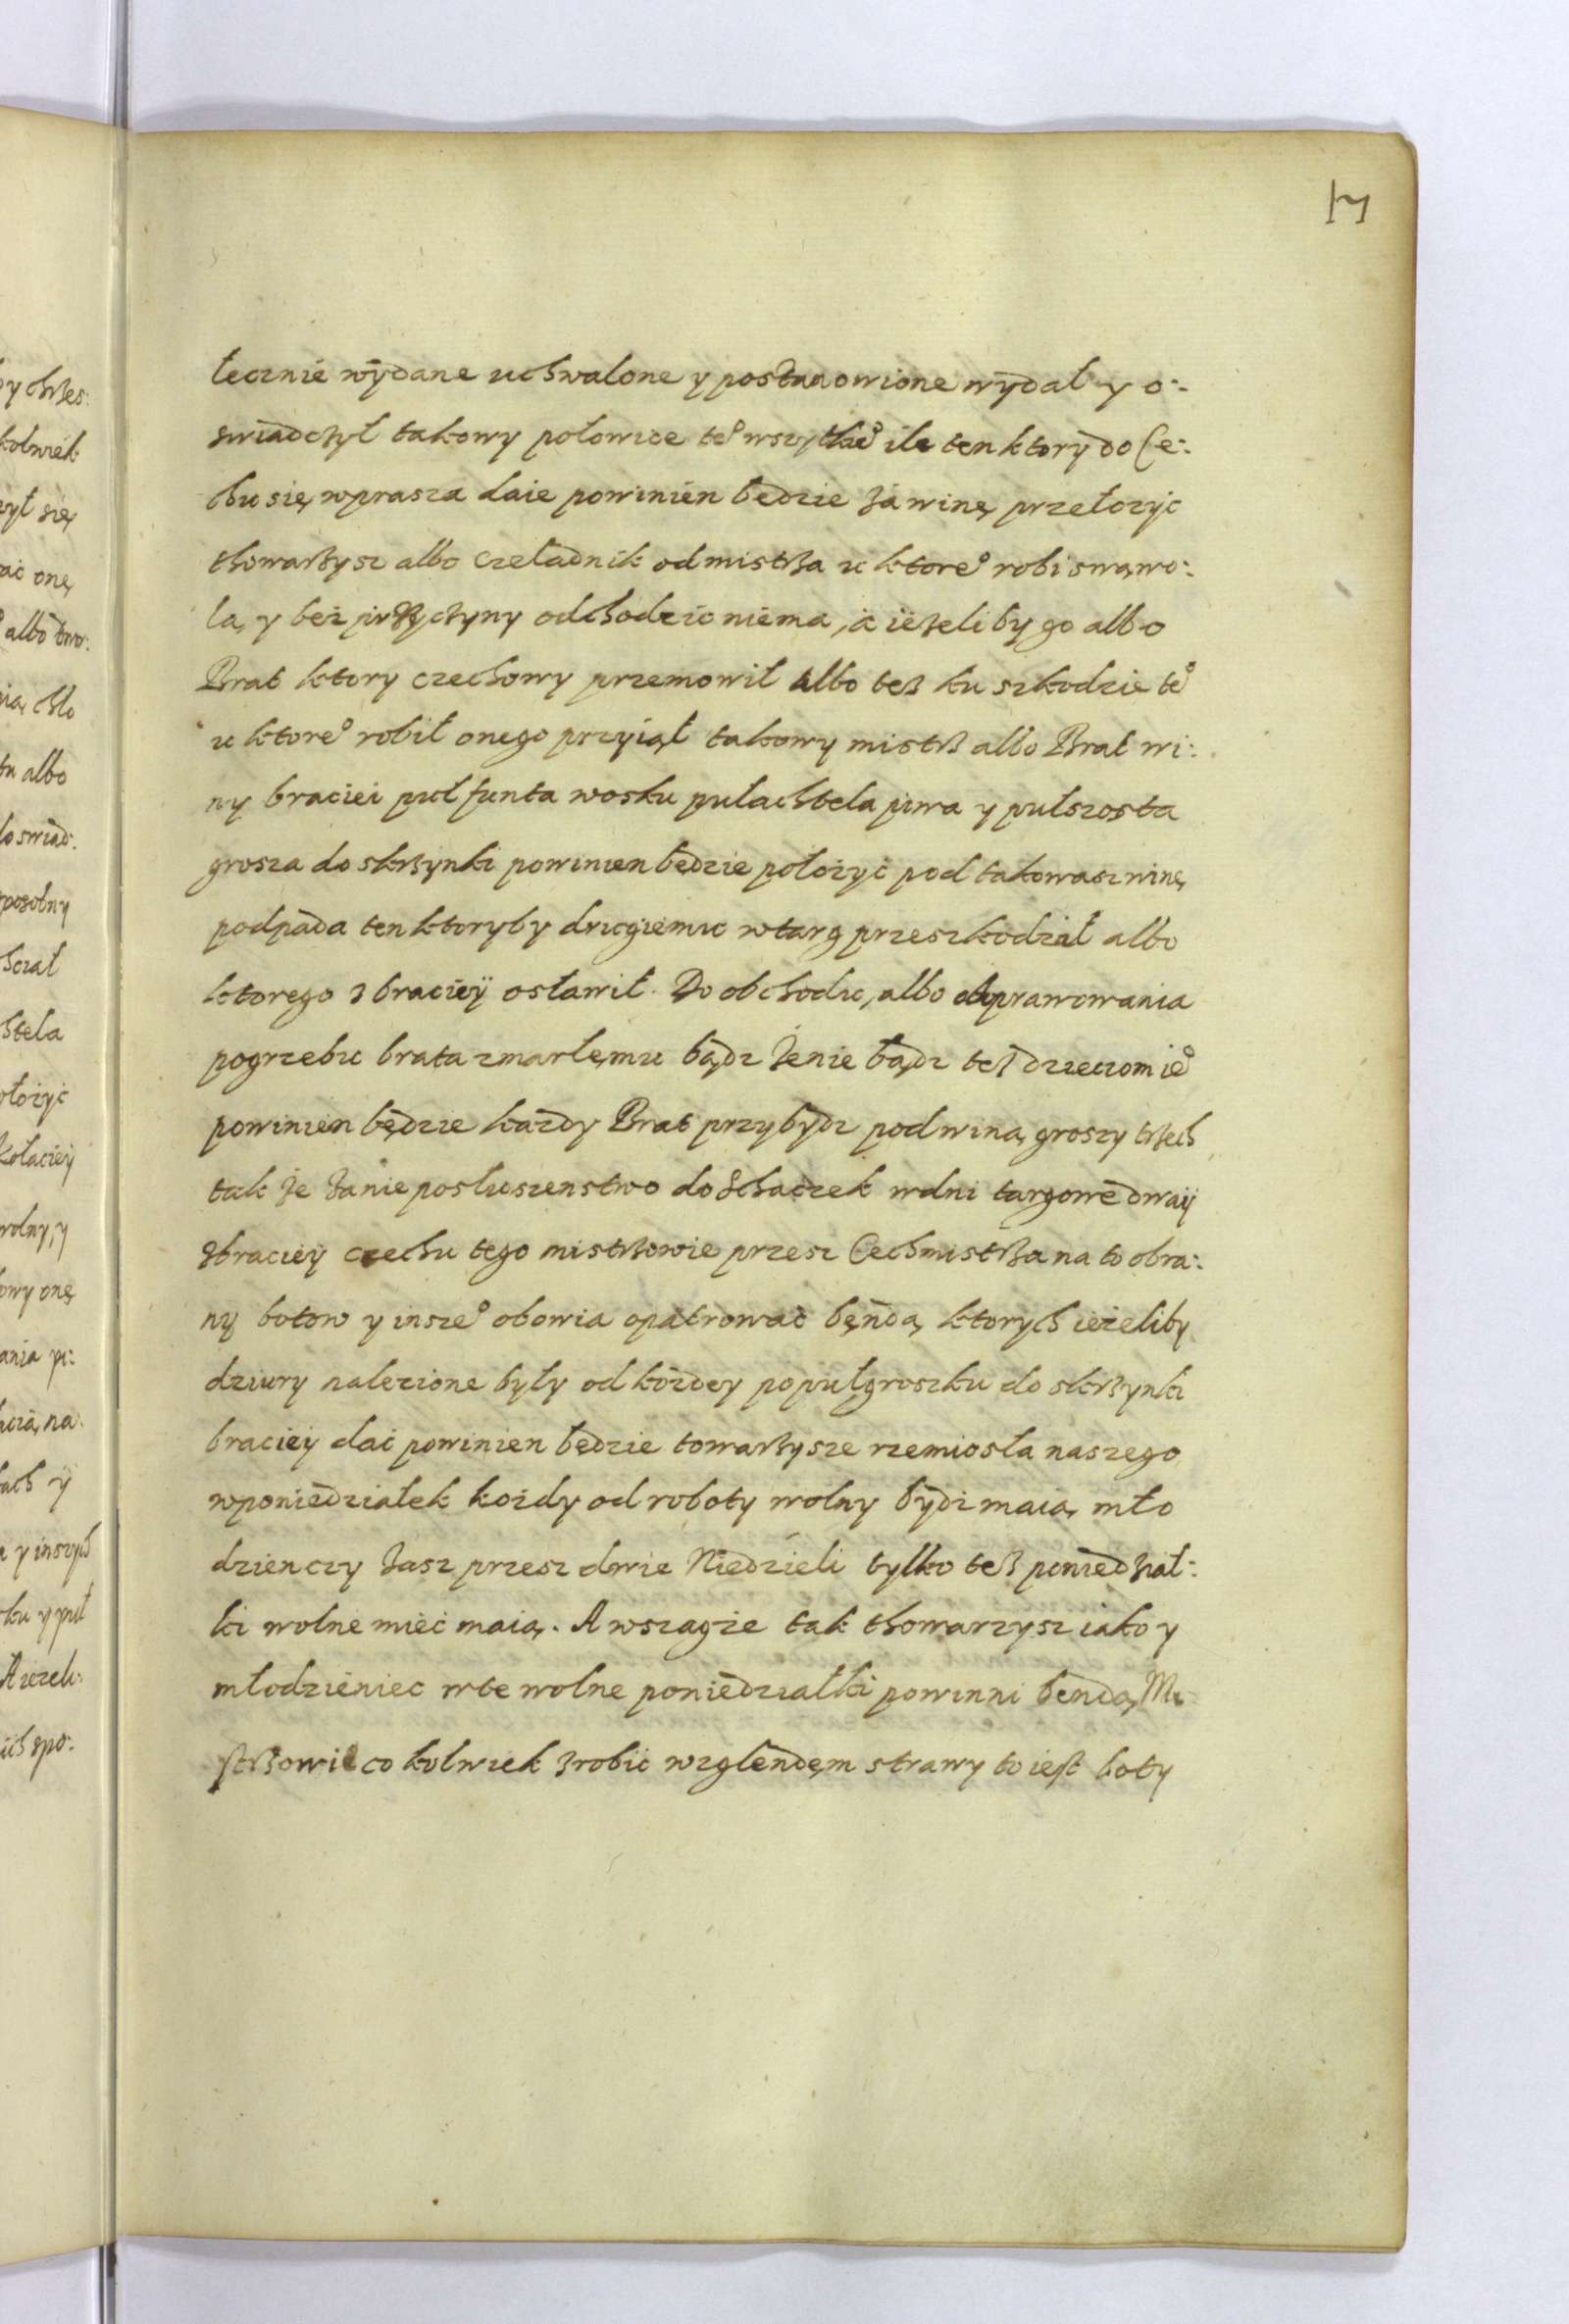 17
by chrzes:
kolwiek
zył się
ać onę
albo two:
nia, chlo
tu albo
lo swiad:
posobny
chczał
chtela
ołożyć
Kolaciey
wolny, y
owy onę
ania pi:
hcią, na
łach y
a y inszych
rku y puł
A iezeli:
iich spo:
tecznie wydane uchwalone y postanowione wydał y o:
swiadczył takowy połowice te⁰ wszytkie⁰ ile ten ktory do Ce:
chu się wprasza daie powinien będzie za winę, przełozyc
thowarzysz albo czeladnik od mistrza u ktore⁰ robi swąwo:
lą, y bez przyczyny odchodzic niema, a iezeliby go albo
Brat ktory czechowy przemowił albo tesz ku szkodzie te⁰
u ktore⁰ robił onego przyiął takowy mistrz albo Brat wi:
ny braciei puł funta wosku pułachtela piwa y pułszosta
grosza do skrzynki powinien będzie położyć pod takowasz winę,
podpada ten ktoryby drugiemu w targ przeszkodził albo
ktorego z braciey osławił. Do obchodu, albo odprawowania
pogrzebu brata zmarłemu bądz żenie bądz tesz dzieciom ie⁰
powinien będzie każdy Brat przybydz pod winą, groszy trzech
tak że zanie posłuszenstwo do Schaczek w dni targowe dwaij
zbraciey czechu tego mistrzowie przesz Cechmistrza na to obra:
ny botow y insze⁰ obowia opatrować bęndą, ktorych ieżeliby
dziury nalezione były od kożdey po pułgroszku do skrzynki
braciey dać powinien będzie towarzysze rzemiosła naszego
w poniedziałek kożdy od roboty wolny bydz maią, mło
dzienczy zasz przesz dwie Niedzieli tylko tesz poniedział:
ki wolne mieć maią. A wszagże tak thowarzysz iako y
młodzieniec w te wolne poniedziałki powinni bendą, Mi
strzowi co kolwiek zrobić wzglendęm strawy to iest boty